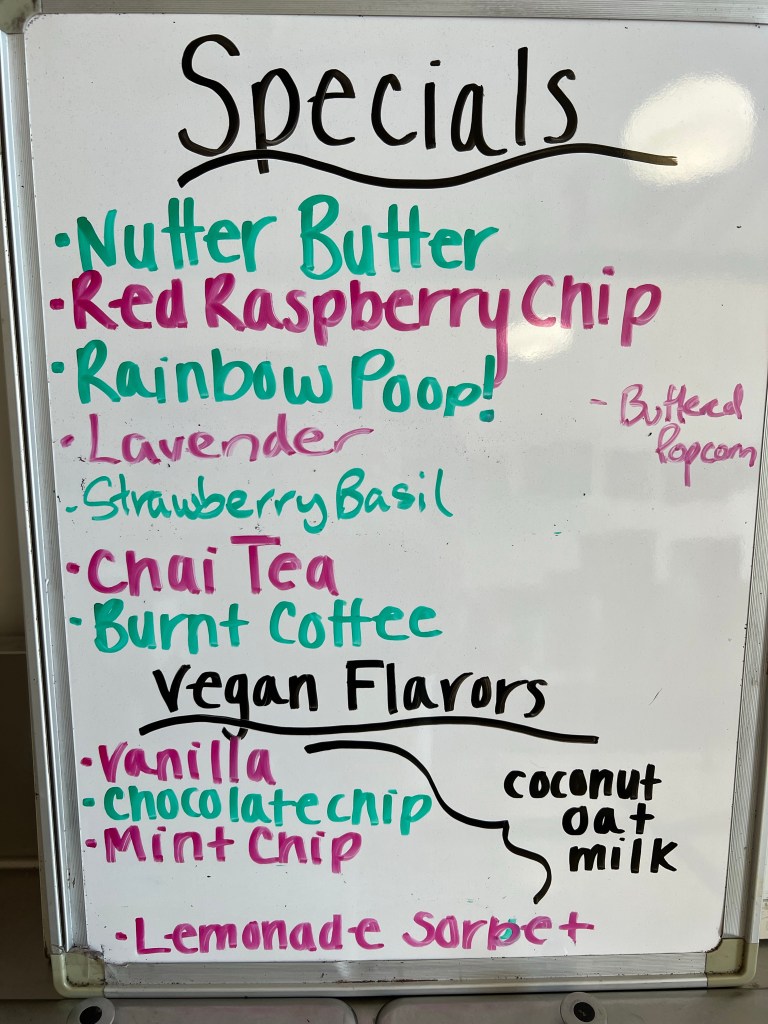 Specials
·Nutter Butter
·Red Raspberry Chip
·Rainbow Poop!
·Lavender
- Buttered
Popcorn
·Strawberry Basil
·Chai Tea
·Burnt Coffee
Vegan Flavors
·Vanilla
·Chocolate chip
·Mint Chip
coconut
oat
milk
·Lemonade Sorbet